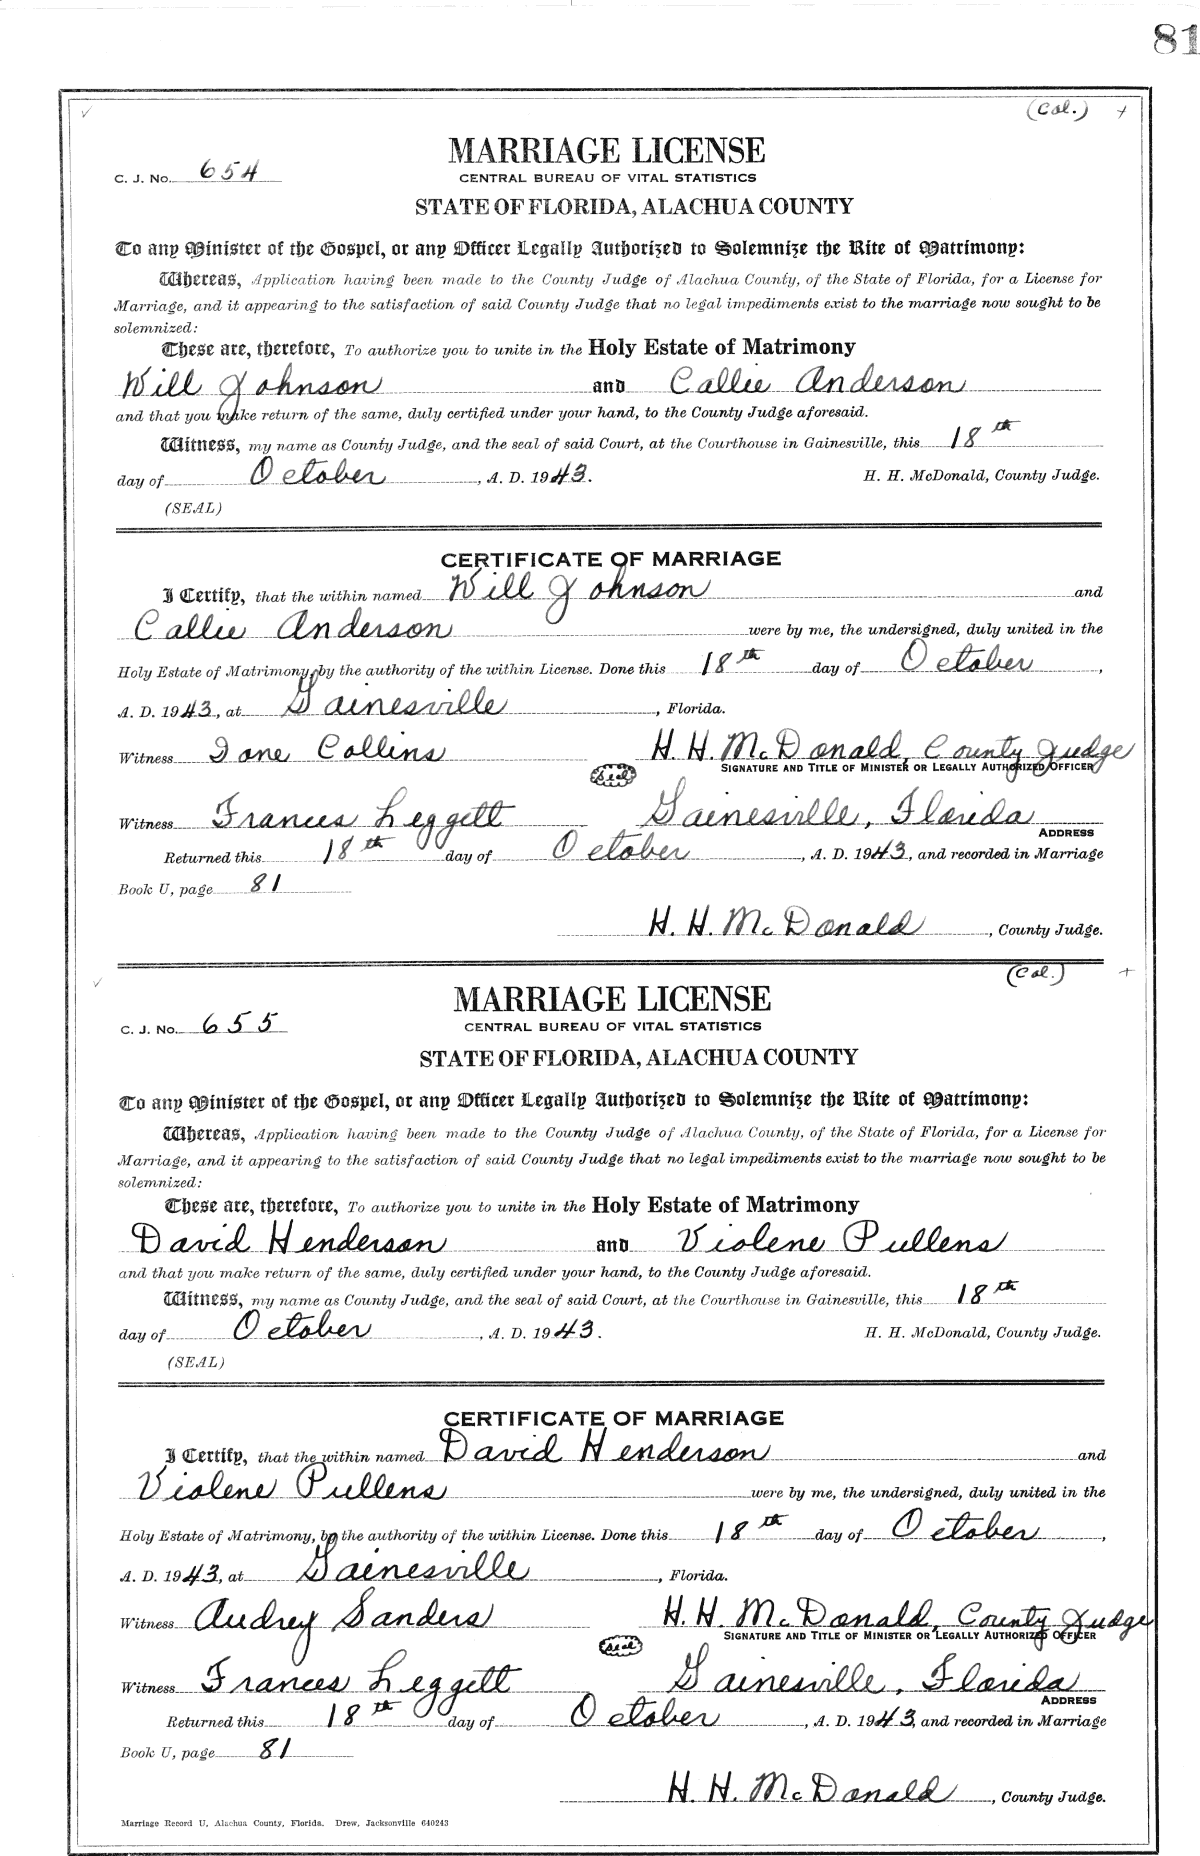 81
(Col.) +
MARRIAGE LICENSE
C. J. No. 654
CENTRAL BUREAU OF VITAL STATISTICS
STATE OF FLORIDA, ALACHUA COUNTY
To any Minister of the Gospel, or any Officer Legally Authorized to Solemnize the Rite of Matrimony:
Whereas, Application having been made to the County Judge of Alachua County, of the State of Florida, for a License for
Marriage, and it appearing to the satisfaction of said County Judge that no legal impediments exist to the marriage now sought to be
solemnized:
These are, therefore, To authorize you to unite in the Holy Estate of Matrimony
Will Johnson and Callie Anderson
and that you make return of the same, duly certified under your hand, to the County Judge aforesaid.
Witness, my name as County Judge, and the seal of said Court, at the Courthouse in Gainesville, this 18th
day of October, A. D. 1943. H. H. McDonald, County Judge.
(SEAL)
CERTIFICATE OF MARRIAGE
I Certify, that the within named Will Johnson and
Callie Anderson were by me, the undersigned, duly united in the
Holy Estate of Matrimony, by the authority of the within License. Done this 18th day of October,
A. D. 1943, at Gainesville, Florida.
Witness Ione Collins H. H. McDonald, County Judge
(Seal) SIGNATURE AND TITLE OF MINISTER OR LEGALLY AUTHORIZED OFFICER
Witness Frances Leggett Gainesville, Florida
ADDRESS
Returned this 18th day of October, A. D. 1943, and recorded in Marriage
Book U, page 81
H. H. McDonald, County Judge.
(Col.) +
MARRIAGE LICENSE
C. J. No. 655
CENTRAL BUREAU OF VITAL STATISTICS
STATE OF FLORIDA, ALACHUA COUNTY
To any Minister of the Gospel, or any Officer Legally Authorized to Solemnize the Rite of Matrimony:
Whereas, Application having been made to the County Judge of Alachua County, of the State of Florida, for a License for
Marriage, and it appearing to the satisfaction of said County Judge that no legal impediments exist to the marriage now sought to be
solemnized:
These are, therefore, To authorize you to unite in the Holy Estate of Matrimony
David Henderson and Violene Pullens
and that you make return of the same, duly certified under your hand, to the County Judge aforesaid.
Witness, my name as County Judge, and the seal of said Court, at the Courthouse in Gainesville, this 18th
day of October, A. D. 1943. H. H. McDonald, County Judge.
(SEAL)
CERTIFICATE OF MARRIAGE
I Certify, that the within named David Henderson and
Violene Pullens were by me, the undersigned, duly united in the
Holy Estate of Matrimony, by the authority of the within License. Done this 18th day of October,
A. D. 1943, at Gainesville, Florida.
Witness Audrey Sanders H. H. McDonald, County Judge
(Seal) SIGNATURE AND TITLE OF MINISTER OR LEGALLY AUTHORIZED OFFICER
Witness Frances Leggett Gainesville, Florida
ADDRESS
Returned this 18th day of October, A. D. 1943, and recorded in Marriage
Book U, page 81
H. H. McDonald, County Judge.
Marriage Record U, Alachua County, Florida. Drew, Jacksonville 640243